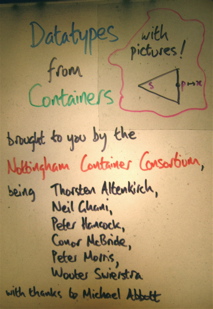 Datatypes
from
Containers
with
pictures!
S
brought to you by the
Nottingham Container Consortium,
being Thorsten Altenkirch,
Neil Ghani,
Peter Hancock,
Conor McBride,
Peter Morris,
Wouter Swierstra
with thanks to Michael Abbott